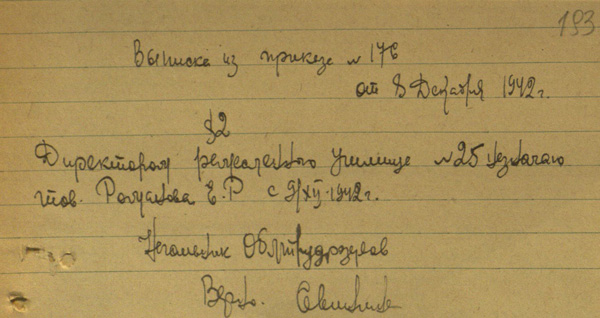 193
Выписка из приказа № 176
от 8 Декабря 1942 г.
§2
Директором ремесленного училища № 25 назначаю
тов. Романова Е.Р с 9/XII-1942 г.
Начальник Облтрудрезервов
Верно.